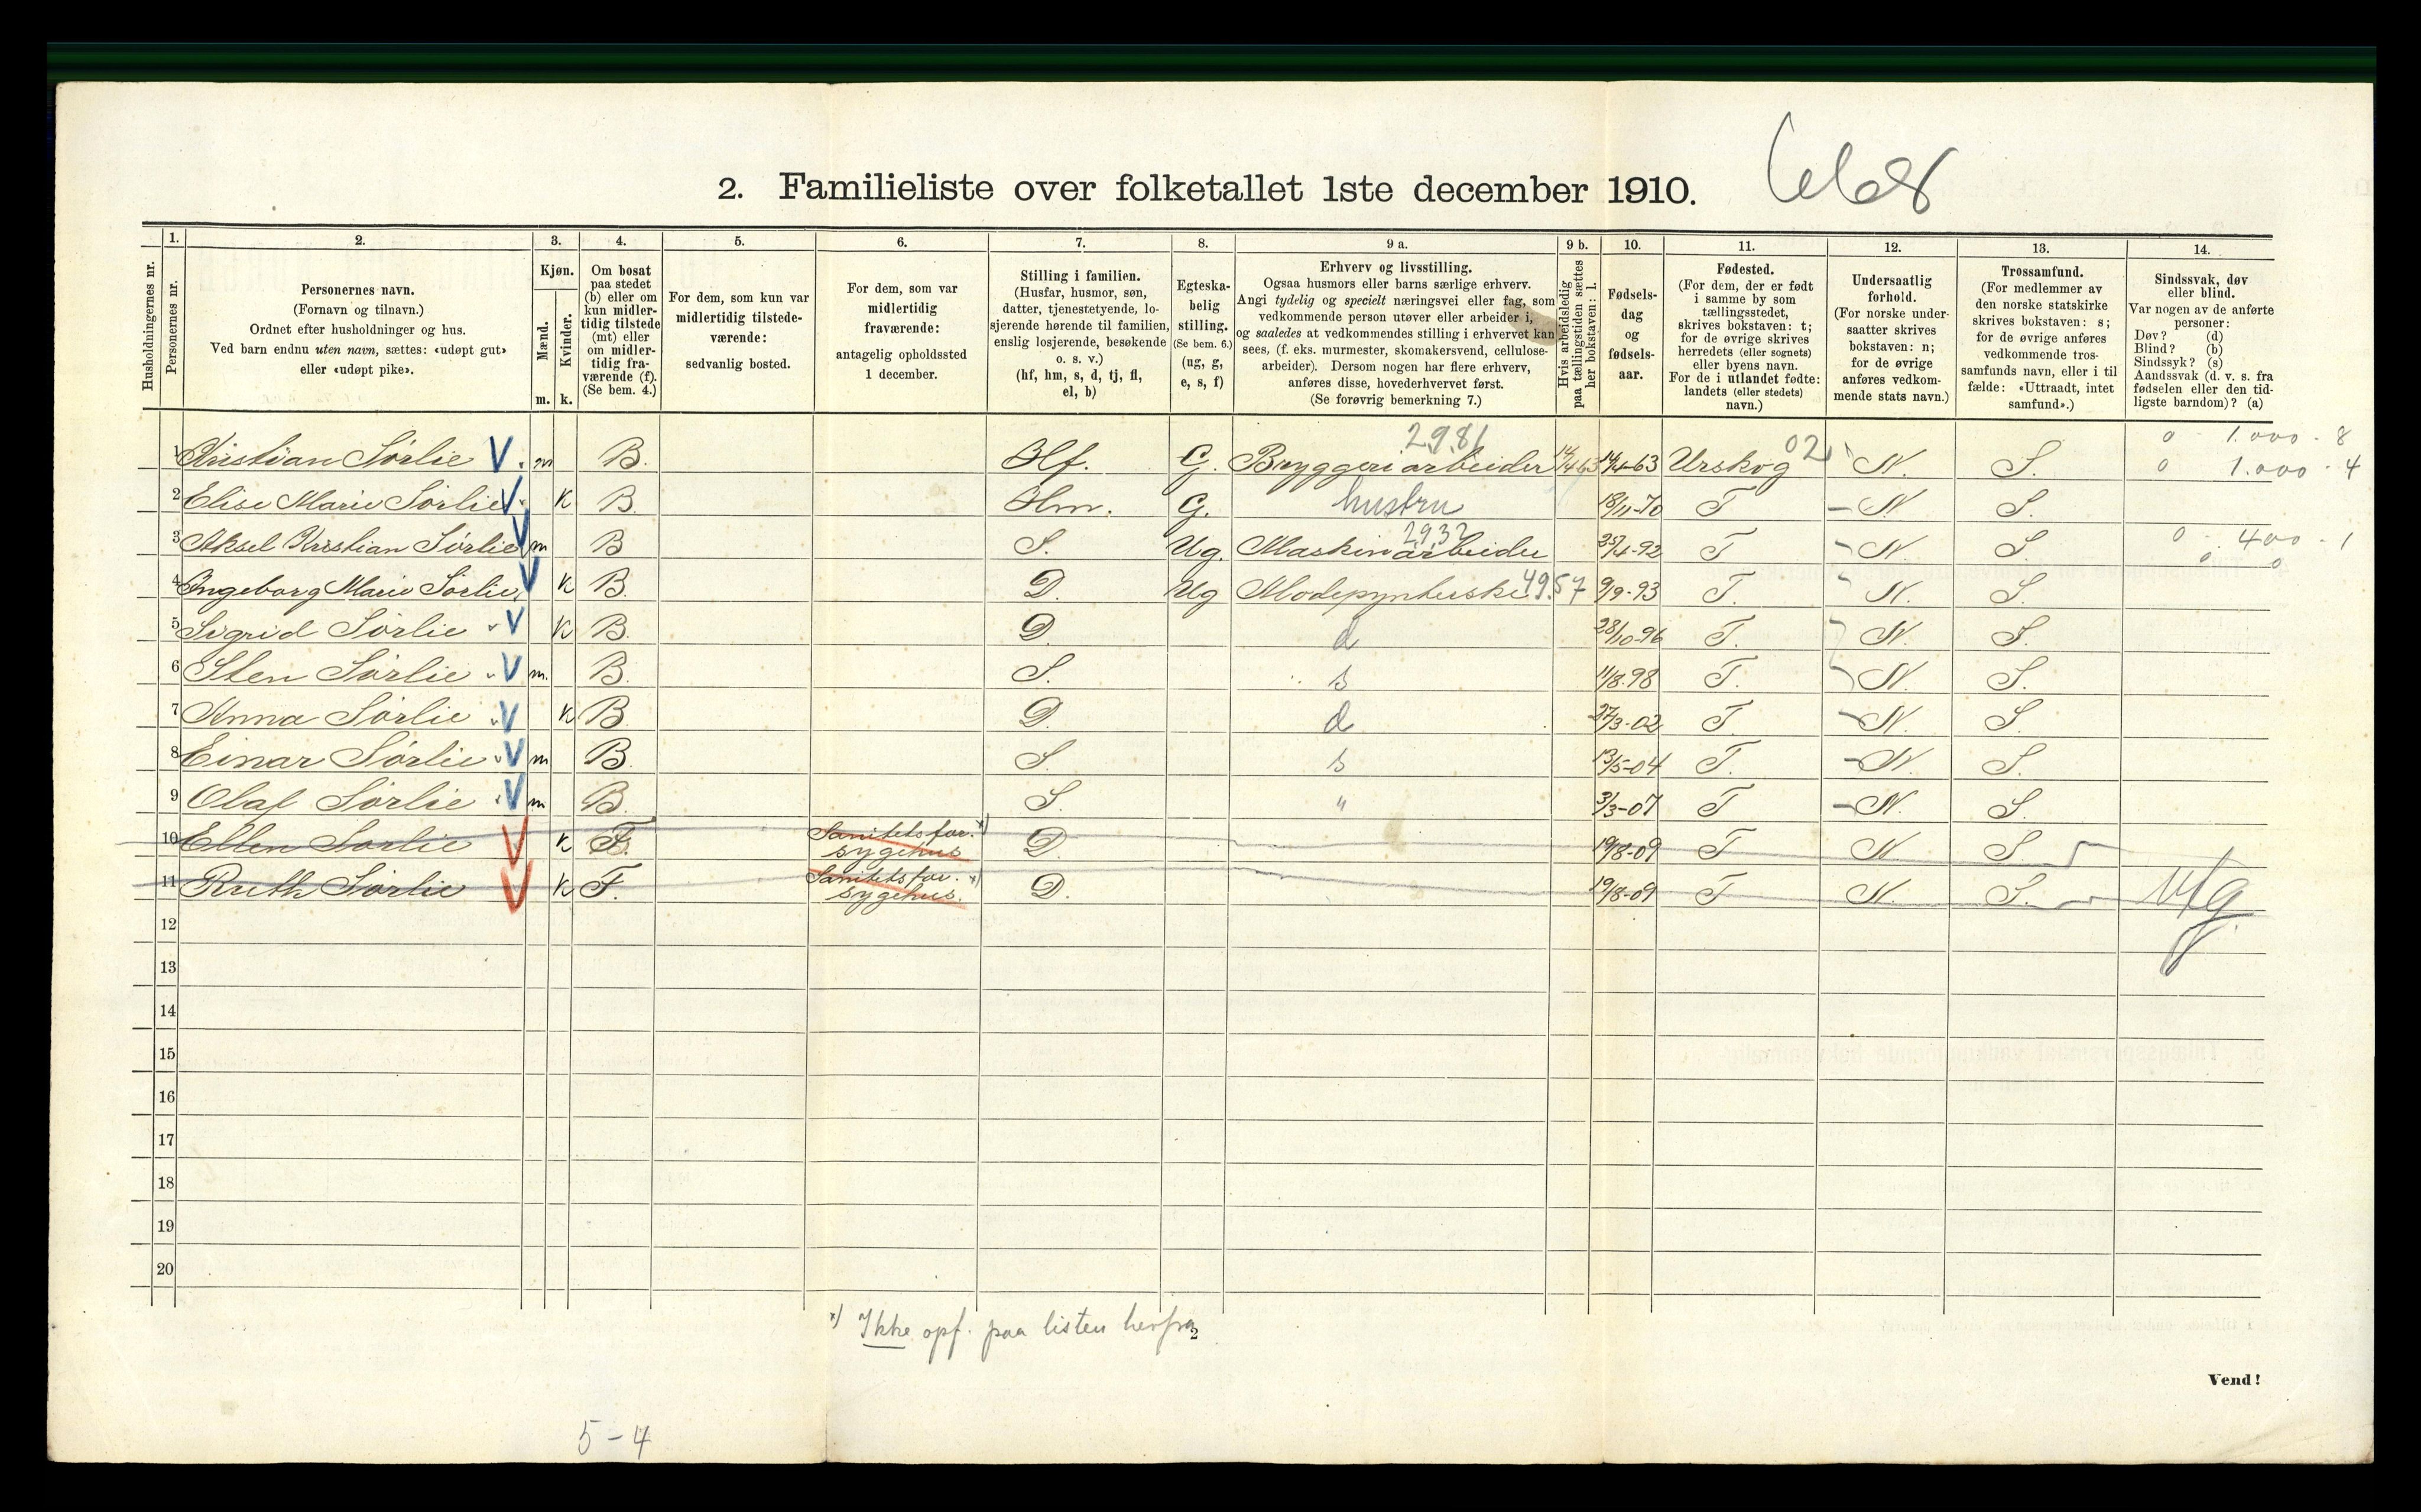 2. Familieliste over folketallet 1ste december 1910.
Husholdningernes nr.
1.
Personernes nr.
2.
Personernes navn.
(Fornavn og tilnavn.)
Ordnet efter husholdninger og hus.
Ved barn endnu uten navn, sættes: «udøpt gut»
eller «udøpt pike».
3.
Kjøn.
Mænd.
Kvinder.
m. k.
4.
Om bosat
paa stedet
(b) eller om
kun midler-
tidig tilstede
(mt) eller
om midler-
tidig fra-
værende (f).
(Se bem. 4.)
5.
For dem, som kun var
midlertidig tilstede-
værende:
sedvanlig bosted.
6.
For dem, som var
midlertidig
fraværende:
antagelig opholdssted
1 december.
7.
Stilling i familien.
(Husfar, husmor, søn,
datter, tjenestetyende, lo-
sjerende hørende til familien,
enslig losjerende, besøkende
o. s. v.)
(hf, hm, s, d, tj, fl,
el, b)
8.
Egteska-
belig
stilling.
(Se bem. 6.)
(ug, g,
e, s, f)
9 a.
Erhverv og livsstilling.
Ogsaa husmors eller barns særlige erhverv.
Angi tydelig og specielt næringsvei eller fag, som
vedkommende person utøver eller arbeider i,
og saaledes at vedkommendes stilling i erhvervet kan
sees, (f. eks. murmester, skomakersvend, cellulose-
arbeider). Dersom nogen har flere erhverv,
anføres disse, hovederhvervet først.
(Se forøvrig bemerkning 7.)
9 b.
Hvis arbeidsledig
paa tællingstiden sættes
her bokstaven: l.
10.
Fødsels-
dag
og
fødsels-
aar.
11.
Fødested.
(For dem, der er født
i samme by som
tællingsstedet,
skrives bokstaven: t;
for de øvrige skrives
herredets (eller sognets)
eller byens navn.
For de i utlandet fødte:
landets (eller stedets)
navn.)
12.
Undersaatlig
forhold.
(For norske under-
saatter skrives
bokstaven: n;
for de øvrige
anføres vedkom-
mende stats navn.)
13.
Trossamfund.
(For medlemmer av
den norske statskirke
skrives bokstaven: s;
for de øvrige anføres
vedkommende tros-
samfunds navn, eller i til
fælde: «Uttraadt, intet
samfund».)
14.
Sindssvak, døv
eller blind.
Var nogen av de anførte
personer:
Døv? (d)
Blind? (b)
Sindssyk? (s)
Aandssvak (d. v. s. fra
fødselen eller den tid-
ligste barndom)? (a)
2981 02 0 1.000 - 8
1 Kristian Sørlie V. m B. Hf. G. Bryggeriarbeider 14/4 63 14/4-63 Urskog N. S. 0 1.000 - 4
2 Elise Marie Sørlie V k B. Hm. G. hustru 18/11-70 T N S.
2932
3 Aksel Kristian Sørlie V m B S. Ug. Maskinarbeider 25/4-92 T N. S. 0 - 400 - 1
0 0
4 Ingeborg Marie Sørlie, V k B. D. Ug Modepynterske 49.57 9/9-93 T. N. S.
5 Sigrid Sørlie V k B. D. d 28/10-96 T. N. S.
6 Sten Sørlie V m. B. S. s 11/8-98 T. N. S.
7 Anna Sørlie V k B. D. d 27/3-02 T. N. S.
8 Einar Sørlie V m B. S. s 13/5-04 T. N. S.
9 Olaf Sørlie V m B. S. " 3/3-07 T N. S.
10 Ellen Sørlie V k F. Sanitetsfor. x) sygehus D. 19/8-09 T N S
11 Ruth Sørlie V k F. Sanitetsfor. x) sygehus. D. 19/8-09 T N. S.
12
13
14
15
16
17
18
19
20
x) Ikke opf. paa listen herfra
2
Vend!
5-4